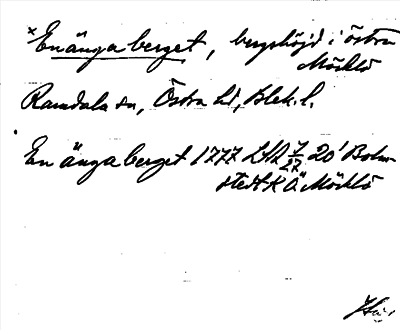 ×Enängaberget, bergshöjd i östra
Möcklö
Ramdala sn, Östra hd, Blek. l.
En änga berget 1777 LSA 7/27 20' Bolm-
stedt K Ö Möcklö